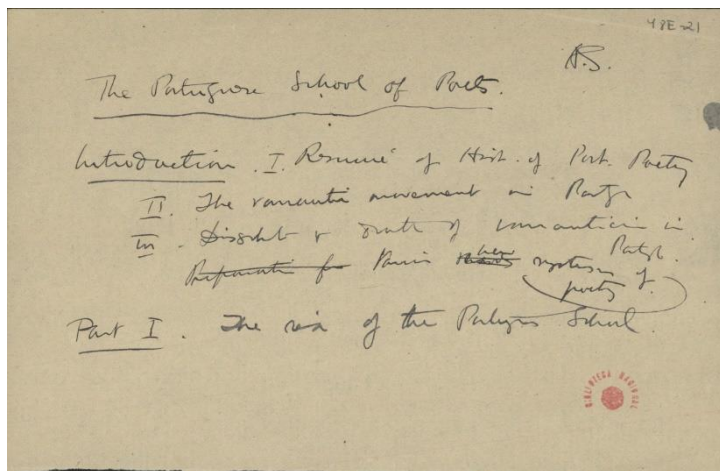 48E-21
A.S.
The Portuguese School of Poets.
Introduction. I. Resumé of Hist. of Port. Poetry
II. The romantic movement in Portgl
III. Dissolut & death of romanticism in Portgl.
Preparation for new mysticism of
poetry
Part I. The rise of the Portugues School.
BIBLIOTECA NACIONAL